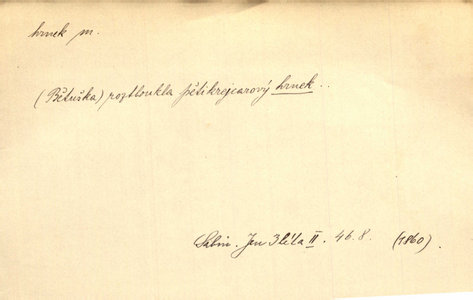 hrnek m.
(Bětuška) roztloukla pětikrejcarový hrnek ..
Sabin. Jen 3 léta II. 46. 8. (1860).